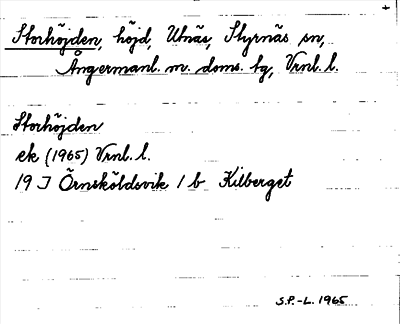 Storhöjden, höjd, Utnäs, Styrnäs sn,
Ångermanl. m. doms. tg, Vrnl. l.
Storhöjden
ek (1965) Vrnl. l.
19 J Örnsköldsvik 1 b Kilberget
S.P.-L. 1965